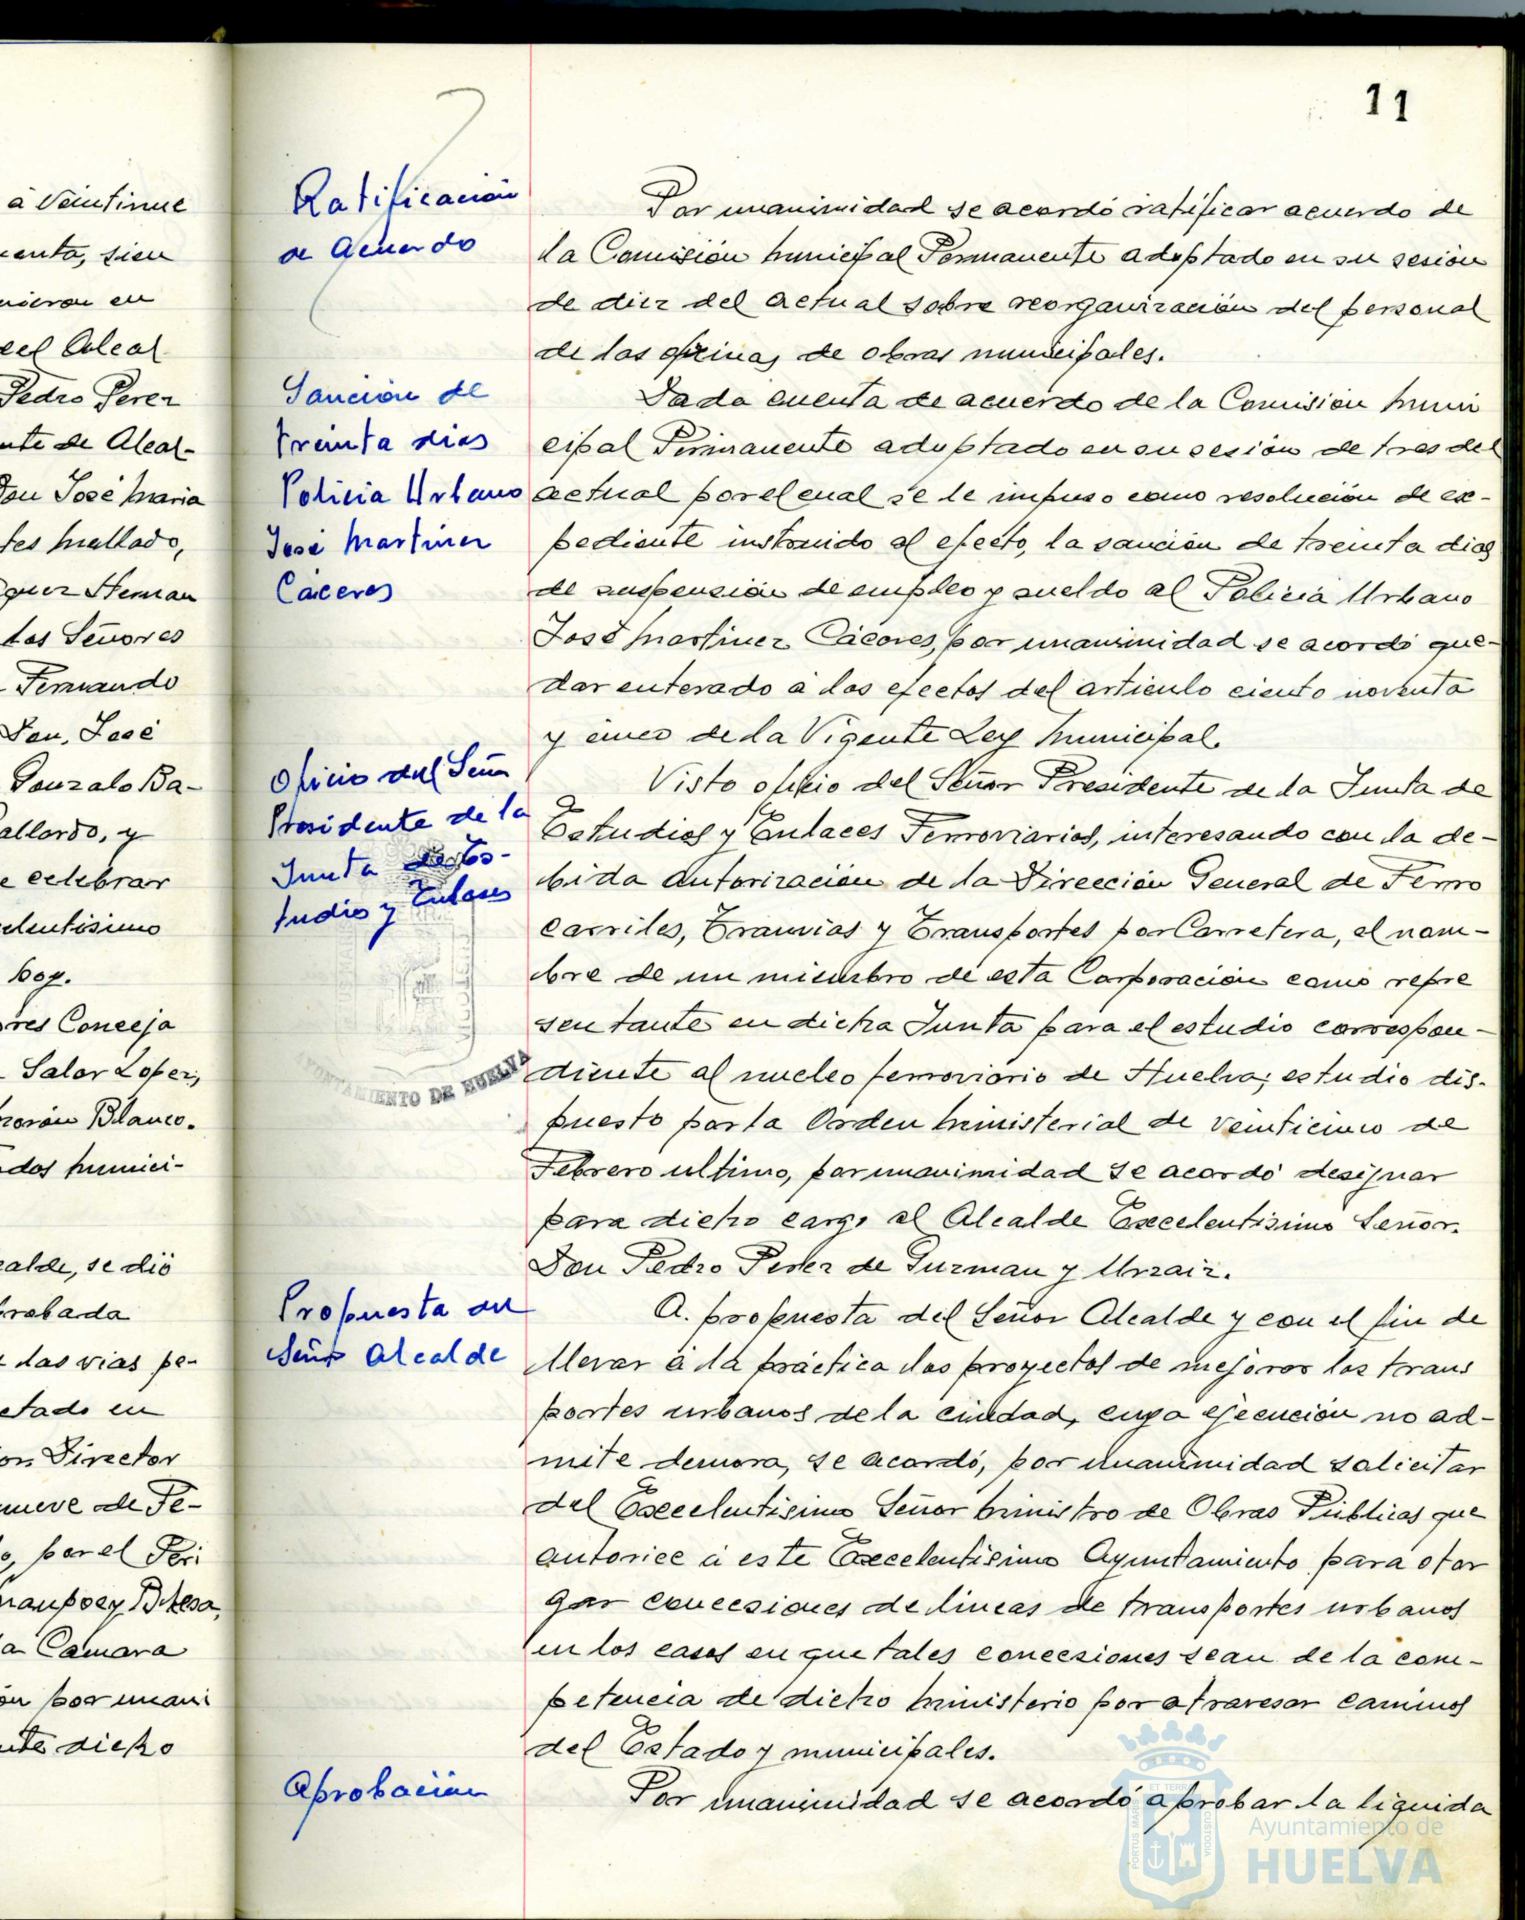 11
à Veintinue
centa, sien
nieron en
del Alcal
Pedro Perez
nte de Alcal-
Don José Maria
tes Mallado,
quez Hernan
los Señores
Fernando
Don, José
Gonzalo Ba-
allardo, y
e celebrar
elentisimo
hoy.
ores Conceja
Salar Lopez,
Blanco.
dos Munici-
calde, se dió
probada
las vias pe-
ctado en
or Director
nueve de Fe-
o, por el Peri
la Camara
ón por unani
nte dicho
Ratificación
de Acuerdo
Por unanimidad se acordó ratificar acuerdo de
la Comisión Municipal Permanente adoptado en su sesión
de diez del actual sobre reorganización del personal
de las oficinas de obras municipales.
Sanción de
treinta dias
Policia Urbano
José Martinez
Cáceres
Dada cuenta de acuerdo de la Comision Muni
cipal Permanente adoptado en su sesión de tres del
actual por el cual se le impuso como resolución de ex-
pediente instruido al efecto, la sanción de treinta dias
de suspensión de empleo y sueldo al Policia Urbano
José Martinez Cáceres, por unanimidad se acordó que-
dar enterado à los efectos del articulo ciento noventa
y cinco de la Vigente Ley Municipal.
Oficio del Señor
Presidente de la
Junta de Es-
tudio y Enlaces
Visto oficio del Señor Presidente de la Junta de
Estudios y Enlaces Ferroviarios, interesando con la de-
bida autorización de la Dirección General de Ferro
carriles, Tranvias y Transportes por Carretera, el nom-
bre de un miembro de esta Corporación como repre
sentante en dicha Junta para el estudio correspon-
diente al nucleo ferroviario de Huelva; estudio dis-
puesto por la Orden Ministerial de veinticinco de
Febrero ultimo, por unanimidad se acordó designar
para dicho cargo al Alcalde Excelentisimo Señor.
Don Pedro Perez de Guzman y Urzaiz.
AYUNTAMIENTO DE HUELVA
Propuesta del
Señor Alcalde
A propuesta del Señor Alcalde y con el fin de
llevar à la práctica los proyectos de mejorar los trans
portes urbanos de la ciudad, cuya ejecución no ad-
mite demora, se acordó, por unanimidad solicitar
del Excelentisimo Señor Ministro de Obras Públicas que
autorice à este Excelentisimo Ayuntamiento para otor
gar concesiones de lineas de transportes urbanos
en los casos en que tales concesiones sean de la com-
petencia de dicho Ministerio por atravesar caminos
del Estado y municipales.
Aprobación
Por unanimidad se acordó aprobar la liquida
Ayuntamiento de
HUELVA